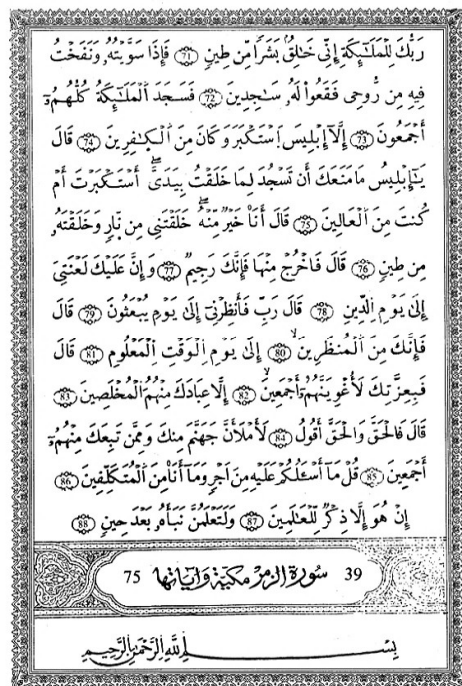 رَبُّكَ لِلْمَلَٰٓئِكَةِ إِنِّي خَٰلِقٌۢ بَشَرًا مِّن طِينٍ 71 فَإِذَا سَوَّيْتُهُۥ وَنَفَخْتُ
فِيهِ مِن رُّوحِى فَقَعُوا۟ لَهُۥ سَٰجِدِينَ 72 فَسَجَدَ الْمَلَٰٓئِكَةُ كُلُّهُمُۥٓ
أَجْمَعُونَ 73 إِلَّآ إِبْلِيسَ اَسْتَكْبَرَ وَكَانَ مِنَ الْكَٰفِرِينَ 74 قَالَ
يَٰٓإِبْلِيسُ مَا مَنَعَكَ أَن تَسْجُدَ لِمَا خَلَقْتُ بِيَدَيَّ أَسْتَكْبَرْتَ أَمْ
كُنتَ مِنَ الْعَالِينَ 75 قَالَ أَنَا۠ خَيْرٌ مِّنْهُ خَلَقْتَنِي مِن نَّارٍ وَخَلَقْتَهُۥ
مِن طِينٍ 76 قَالَ فَاخْرُجْ مِنْهَا فَإِنَّكَ رَجِيمٌ 77 وَإِنَّ عَلَيْكَ لَعْنَتِيَ
إِلَىٰ يَوْمِ الدِّينِ 78 قَالَ رَبِّ فَأَنظِرْنِيٓ إِلَىٰ يَوْمِ يُبْعَثُونَ 79 قَالَ
فَإِنَّكَ مِنَ الْمُنظَرِينَ 80 إِلَىٰ يَوْمِ الْوَقْتِ الْمَعْلُومِ 81 قَالَ
فَبِعِزَّتِكَ لَأُغْوِيَنَّهُمُۥٓ أَجْمَعِينَ 82 إِلَّا عِبَادَكَ مِنْهُمُ الْمُخْلَصِينَ 83
قَالَ فَالْحَقَّ وَالْحَقَّ أَقُولُ 84 لَأَمْلَأَنَّ جَهَنَّمَ مِنكَ وَمِمَّن تَبِعَكَ مِنْهُمُۥٓ
أَجْمَعِينَ 85 قُلْ مَآ أَسْـَٔلُكُمْ عَلَيْهِ مِنْ أَجْرٍ وَمَآ أَنَا۠ مِنَ الْمُتَكَلِّفِينَ 86
إِنْ هُوَ إِلَّا ذِكْرٌ لِّلْعَٰلَمِينَ 87 وَلَتَعْلَمُنَّ نَبَأَهُۥ بَعْدَ حِينٍ 88
39 سورة الزمر مكية وآياتها 75
بِسْمِ اللَّهِ الرَّحْمَٰنِ الرَّحِيمِ